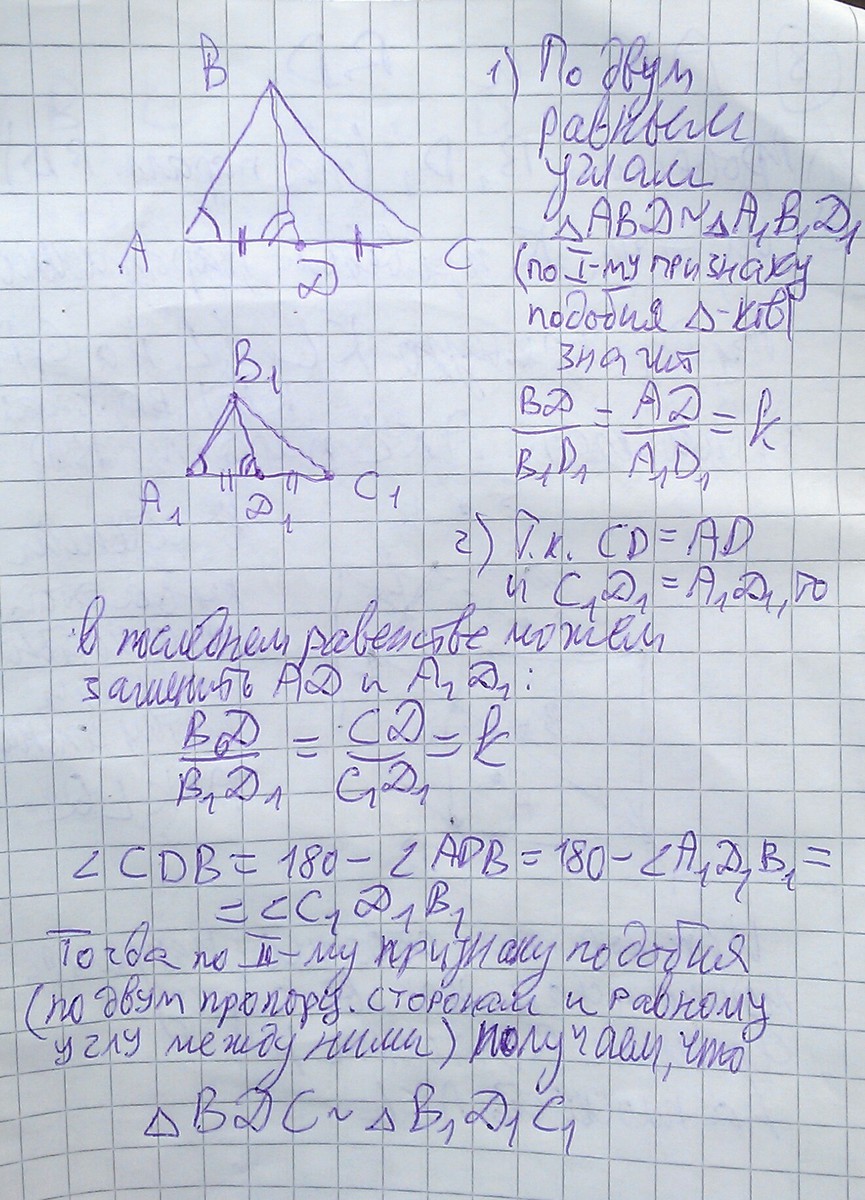 B
A
D
C
B₁
A₁
D₁
C₁
1) По двум
равным
углам
△ABD~△A₁B₁D₁
(по I-му признаку
подобия △-ков)
значит
BD/B₁D₁ = AD/A₁D₁ = k
2) Т.к. CD = AD
и C₁D₁ = A₁D₁, то
в последнем равенстве можем
заменить AD и A₁D₁:
BD/B₁D₁ = CD/C₁D₁ = k
∠CDB = 180 - ∠ADB = 180 - ∠A₁D₁B₁ =
= ∠C₁D₁B₁
Тогда по II-му признаку подобия
(по двум пропорц. сторонам и равному
углу между ними) получаем, что
△BDC ~ △B₁D₁C₁